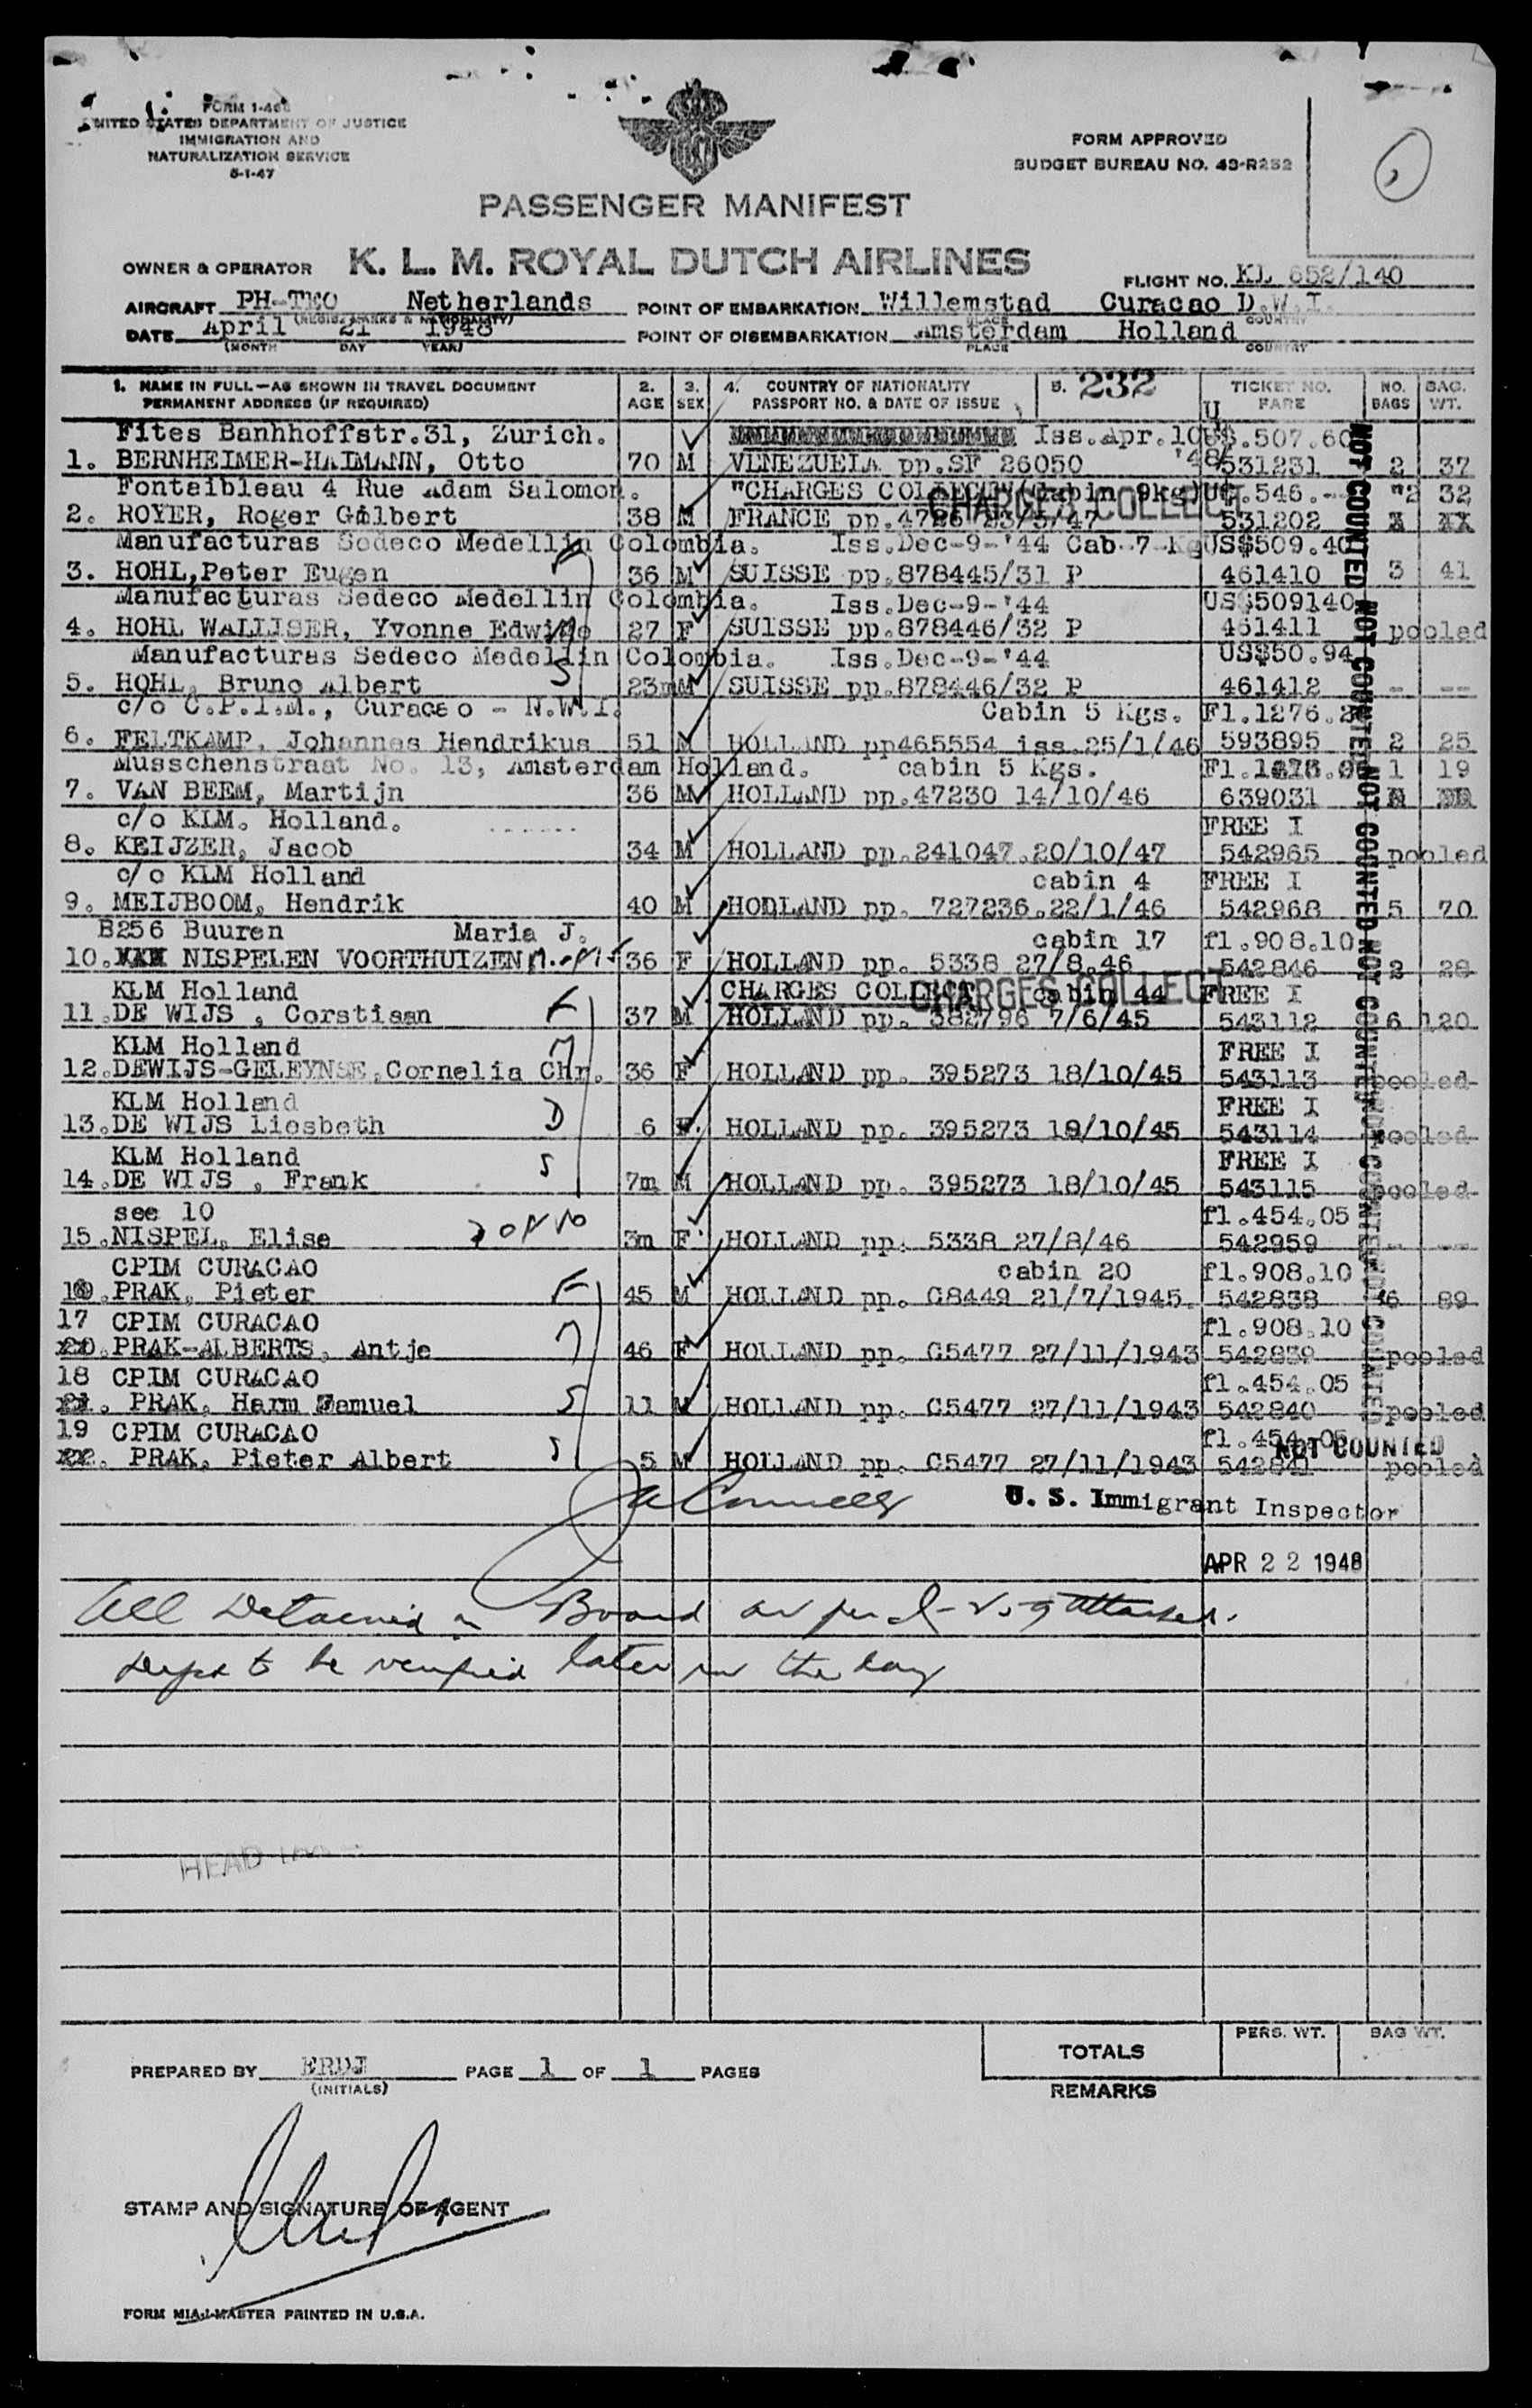 FORM I-466
UNITED STATES DEPARTMENT OF JUSTICE
IMMIGRATION AND
NATURALIZATION SERVICE
5-1-47
FORM APPROVED
BUDGET BUREAU NO. 43-R252
PASSENGER MANIFEST
OWNER & OPERATOR K. L. M. ROYAL DUTCH AIRLINES
FLIGHT NO. KL 652/140
AIRCRAFT PH-TEO Netherlands POINT OF EMBARKATION Willemstad Curacao D.W.I.
(REGIS. MARKS & NATIONALITY) PLACE COUNTRY
DATE April 21 1948 POINT OF DISEMBARKATION Amsterdam Holland
(MONTH DAY YEAR) PLACE COUNTRY
1. NAME IN FULL—AS SHOWN IN TRAVEL DOCUMENT 2. 3. 4. COUNTRY OF NATIONALITY 5. 232 TICKET NO. NO. BAG.
PERMANENT ADDRESS (IF REQUIRED) AGE SEX PASSPORT NO. & DATE OF ISSUE FARE BAGS WT.
Fites Banhhoffstr.31, Zurich. Iss.Apr.10 U$.507.60
1. BERNHEIMER-HAIMANN, Otto 70 M VENEZUELA pp.SF 26050 '48/ 531231 2 37
Fonteibleau 4 Rue Adam Salomon. "CHARGES COLLECT" (cabin 9kg) U$.546.-- "2 32
CHARGES COLLECT
2. ROYER, Roger Gilbert 38 M FRANCE pp.4726 23/5/47 531202 X XX
Manufacturas Sodeco Medellin Colombia. Iss.Dec-9-'44 Cab 7 Kg US$509.40
3. HOHL,Peter Eugen 36 M SUISSE pp.878445/31 P 461410 3 41
Manufacturas Sedeco Medellin Colombia. Iss.Dec-9-'44 US$509140
4. HOHL WALLISER, Yvonne Edwige 27 F SUISSE pp.878446/32 P 461411 pooled
Manufacturas Sedeco Medellin Colombia. Iss.Dec-9-'44 US$50.94
5. HOHL, Bruno Albert 23m M SUISSE pp.878446/32 P 461412 - --
c/o C.P.I.M., Curacao - N.W.I. Cabin 5 Kgs. Fl.1276.2
6. FELTKAMP, Johannes Hendrikus 51 M HOLLAND pp465554 iss.25/1/46 593895 2 25
Musschenstraat No. 13, Amsterdam Holland. cabin 5 Kgs. 1 19
7. VAN BEEM, Martijn 36 M HOLLAND pp.47230 14/10/46 639031
c/o KLM. Holland. FREE I
8. KEIJZER, Jacob 34 M HOLLAND pp.241047.20/10/47 542965 pooled
c/o KLM Holland cabin 4 FREE I
9. MEIJBOOM, Hendrik 40 M HOLLAND pp. 727236.22/1/46 542968 5 70
B256 Buuren Maria J. cabin 17 fl.908.10
10. NISPELEN VOORTHUIZEN 36 F HOLLAND pp. 5338 27/8.46 542846 2 28
KLM Holland CHARGES COLLECT cabin 44 FREE I
CHARGES COLLECT
11.DE WIJS , Corstiaan F 37 M HOLLAND pp. 382796 7/6/45 543112 6 120
KLM Holland FREE I
12.DEWIJS-GELEYNSE,Cornelia Chr. M 36 F HOLLAND pp. 395273 18/10/45 543113 pooled
KLM Holland FREE I
13.DE WIJS Liesbeth D 6 F. HOLLAND pp. 395273 18/10/45 543114 pooled
KLM Holland FREE I
14.DE WIJS , Frank S 7m M HOLLAND pp. 395273 18/10/45 543115 pooled
see 10 fl.454.05
15.NISPEL, Elise D of N10 3m F HOLLAND pp. 5338 27/8/46 542959 - --
CPIM CURACAO cabin 20 fl.908.10
16.PRAK, Pieter F 45 M HOLLAND pp. G8449 21/7/1945. 542838 6 89
17 CPIM CURACAO fl.908.10
PRAK-ALBERTS, Antje M 46 F HOLLAND pp. G5477 27/11/1943 542839 pooled
18 CPIM CURACAO fl.454.05
PRAK, Harm Samuel S 11 M HOLLAND pp. G5477 27/11/1943 542840 pooled
19 CPIM CURACAO fl.454.05
PRAK, Pieter Albert S 5 M HOLLAND pp. G5477 27/11/1943 542841 pooled
NOT COUNTED NOT COUNTED NOT COUNTED NOT COUNTED NOT COUNTED
NOT COUNTED
U. S. Immigrant Inspector
APR 22 1948
All Detained on Board as per I-259 attached.
Dept to be verified later in the day
HEAD TAX
TOTALS PERS. WT. BAG WT.
PREPARED BY ERDJ PAGE 1 OF 1 PAGES
(INITIALS)
REMARKS
STAMP AND SIGNATURE OF AGENT
FORM MIA-1-MASTER PRINTED IN U.S.A.